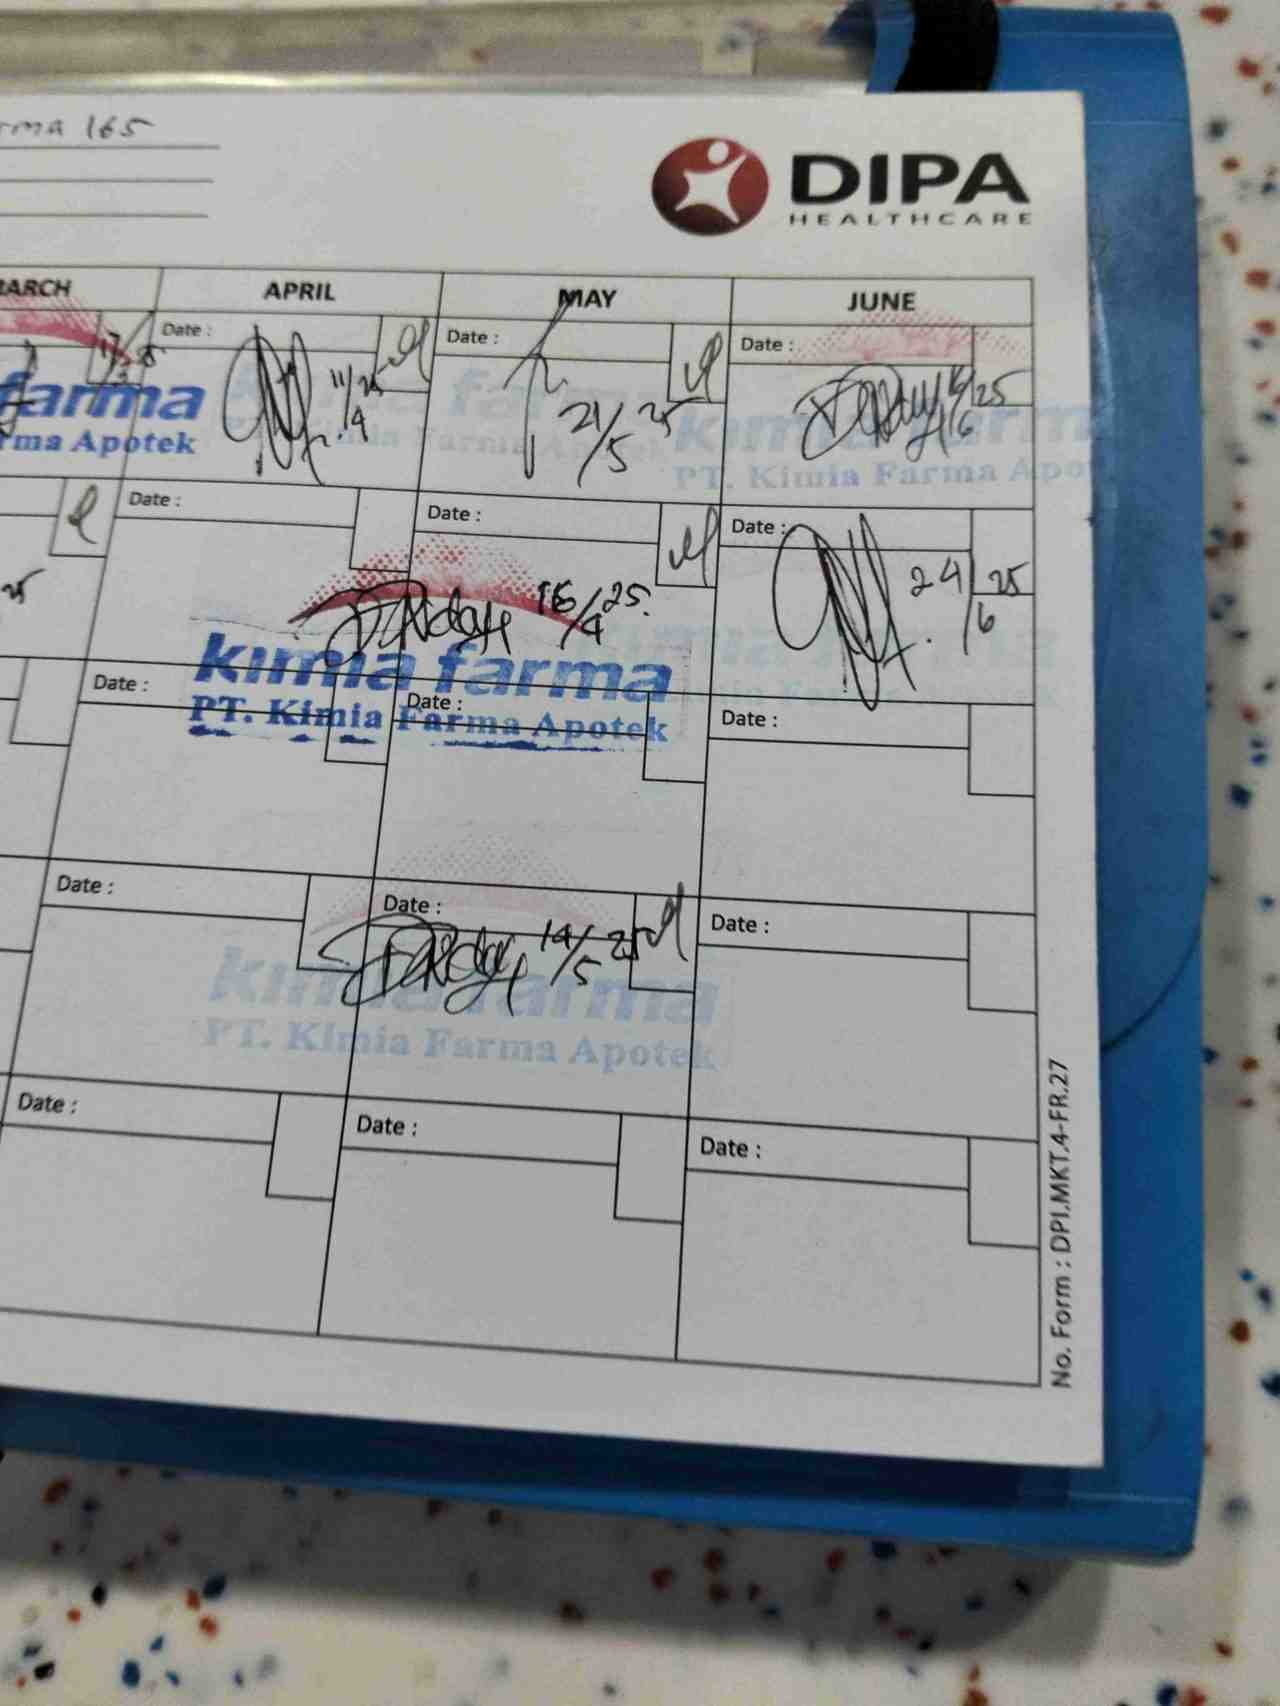 rma 165
DIPA
HEALTHCARE
MARCH APRIL MAY JUNE
Date : Date : Date :
11/4 25 21/5 25 16/6 25
farma kimia farma kimia farma
rma Apotek PT. Kimia Farma Apotek PT. Kimia Farma Apo
Date : Date : Date :
16/4 25. 24/6 25
kimia farma
PT. Kimia Farma Apotek
Date : Date : Date :
Date : Date : Date :
14/5 25
kimia farma
PT. Kimia Farma Apotek
Date : Date : Date :
No. Form : DPI.MKT.4-FR.27